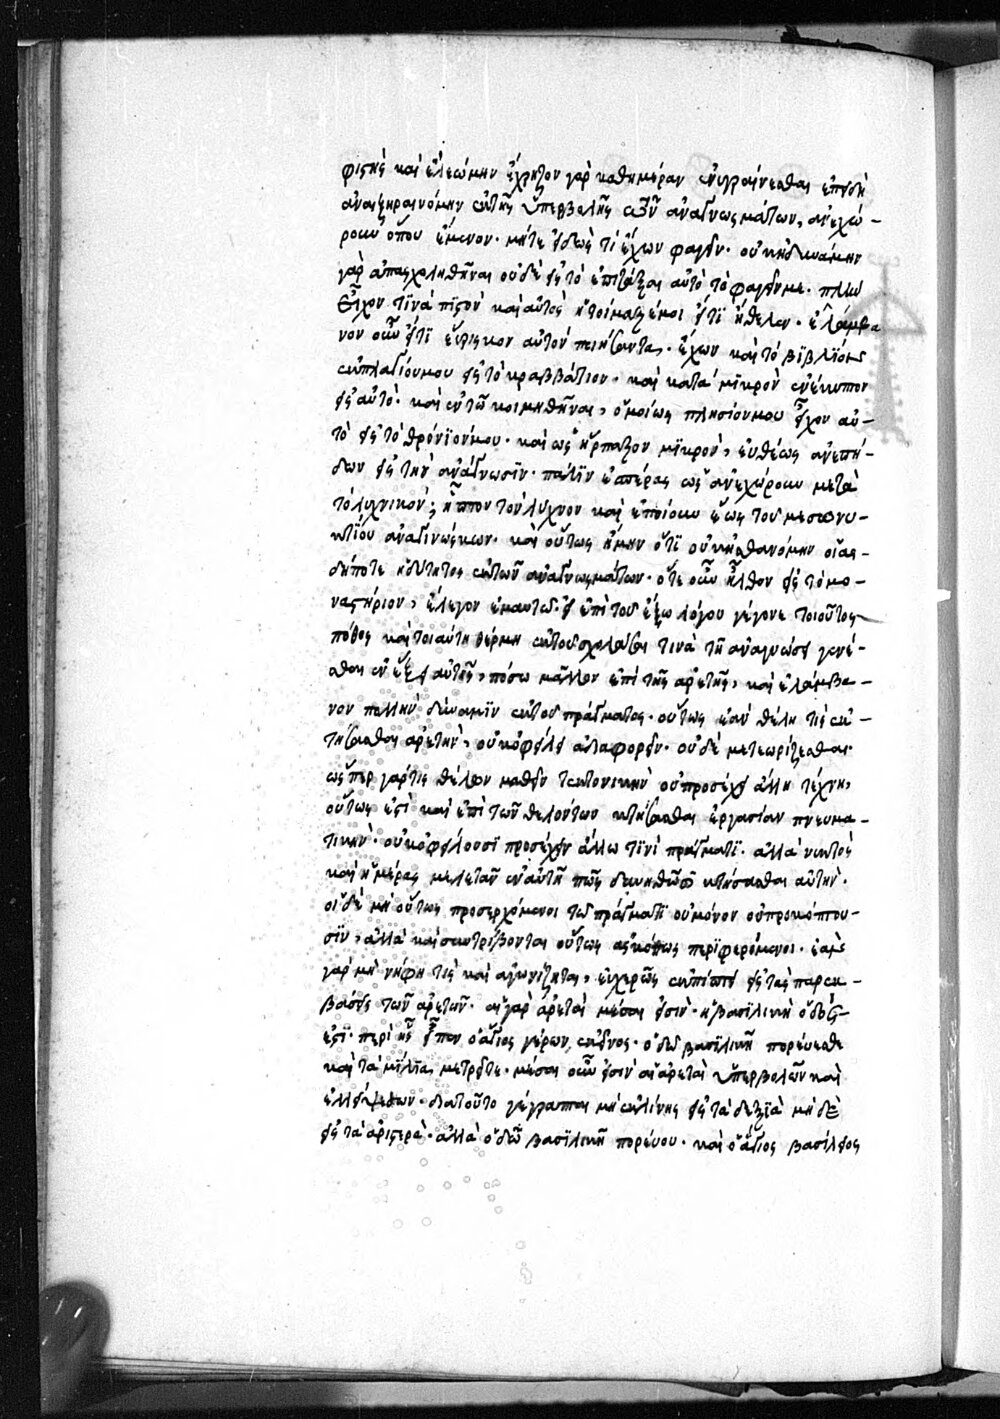 φιστής καὶ ἐλουόμην ἔχρηζον γὰρ καθημέραν ἐνυγραίνεσθαι ἐπειδὴ
ἀνεξηραινόμην ἐκτῆς ὑπερβολῆς τῶν ἀναγνωσμάτων, ἀνεχώ-
ρουν ὅπου ἔμενον· μήτε εἰδὼς τί ἔχων φαγεῖν· οὐκηδυνάμην
γὰρ ἀπασχοληθῆναι οὐδὲ εἰς τὸ ἐπιτάξαι αὐτὸ τὸ φαγεῖν με· πλὴν
Εἶχον τϊνὰ πϊστὸν καὶ αὐτὸς ἡτοίμαζέμοι εἴτϊ ἤθελεν· ἐλάμβα
νον οὖν εἴτϊ εὕρισκον αὐτὸν ποιήσαντα· ἔχων καὶ τὸ βϊβλϊον
ἐκπλαγίουμου εἰς τὸ κραββάτιον· καὶ κατὰ μϊκρὸν ἐνέκυπτον
εἰς αὐτό· καὶ ἐντῶ κοιμηθῆναι, ὁμοίως πλησίονμου εἶχον αὐ-
τὸ εἰς τὸ θρόνϊονμου· καὶ ὡς ἥρπαζον μϊκρὸν, εὐθέως ἀνεπή-
δων εἰς τὴν ἀνάγνωσϊν· πάλϊν ἑσπέρας ὡς ἀνεχώρουν μετὰ
τὸ λυχνικόν, ἧπτον τὸν λύχνον καὶ ἐποίουν ἕως τοῦ μεσονυ-
κτΐου ἀναγϊνώσκων· καὶ οὕτως ἤμην ὅτϊ οὐκηισθανόμην οἵας-
δήποτε ἡδύτητος ἐκτῶν ἀναγνωσμάτων· ὅτε οὖν ἦλθον εἰς τὸ μο-
ναστήριον, ἔλεγον ἐμαυτῶ· εἰ ἐπὶ τοῦ ἔξω λόγου γέγονε τοιοῦτος
πόθος καὶ τοιαύτη θέρμη ἐκτοῦ σχολάσαι τινὰ τῆ ἀναγνώσει γενέ-
σθαι ἐν ἕξει αὐτῆς, πόσω μᾶλλον ἐπὶ τῆς ἀρετῆς, καὶ ἐλάμβα-
νον πολλὴν δύναμϊν ἐκτοῦ πράγματος· οὕτως ἐὰν θέλη τὶς κ-
τήσασθαι ἀρετὴν, οὐκ ὀφείλει ἀδιαφορεῖν· οὐδὲ μετεωρίζεσθαι·
ὥσπερ γάρτις θέλων μαθεῖν τεκτονικὴν οὐπροσέχει ἄλλη τέχνη,
οὕτως ἐστὶ καὶ ἐπὶ τῶν θελόντων κτήσασθαι ἐργασίαν πνευμα-
τικὴν· οὐκ ὀφείλουσϊ προσέχειν ἄλλω τϊνὶ πράγματϊ· ἀλλὰ νυκτὸς
καὶ ἡμέρας μελετᾶν ἐναὐτῆ πῶς δυνηθῶσϊ κτήσασθαι αὐτὴν·
οἱ δὲ μὴ οὕτως προσερχόμενοι τῶ πράγματϊ οὐμόνον οὐπροκόπτου-
σϊν, ἀλλὰ καὶ συντρίβονται οὕτως ἀσκόπως περϊφερόμενοι· ἐὰμὲ
γὰρ μὴ νήφη τὶς καὶ ἀγωνίζηται, εὐχερῶς ἐκπίπτει εἰς τὰς παρεκ-
βάσεις τῶν ἀρετῶν· αἱ γὰρ ἀρεταὶ μέσαι εἰσὶν· ἡ βασϊλικὴ ὁδός-
ἐστϊ· περὶ ἧς εἶπεν ὁ ἅγιος γέρων ἐκεῖνος· ὁδῶ βασϊλικῆ πορεύεσθε
καὶ τὰ μΐλϊα, μετρεῖτε· μέσαι οὖν εἰσὶν αἱ ἀρεταὶ ὑπερβολῶν καὶ
ἐλλείψεων· διατοῦτο γέγραπται μὴ ἐκκλίνης εἰς τὰ δεξϊὰ μὴ δὲ
εἰς τὰ ἀριστερὰ· ἀλλὰ ὁδῶ βασϊλικῆ πορεύου· καὶ ὁ ἅγιος βασίλειος